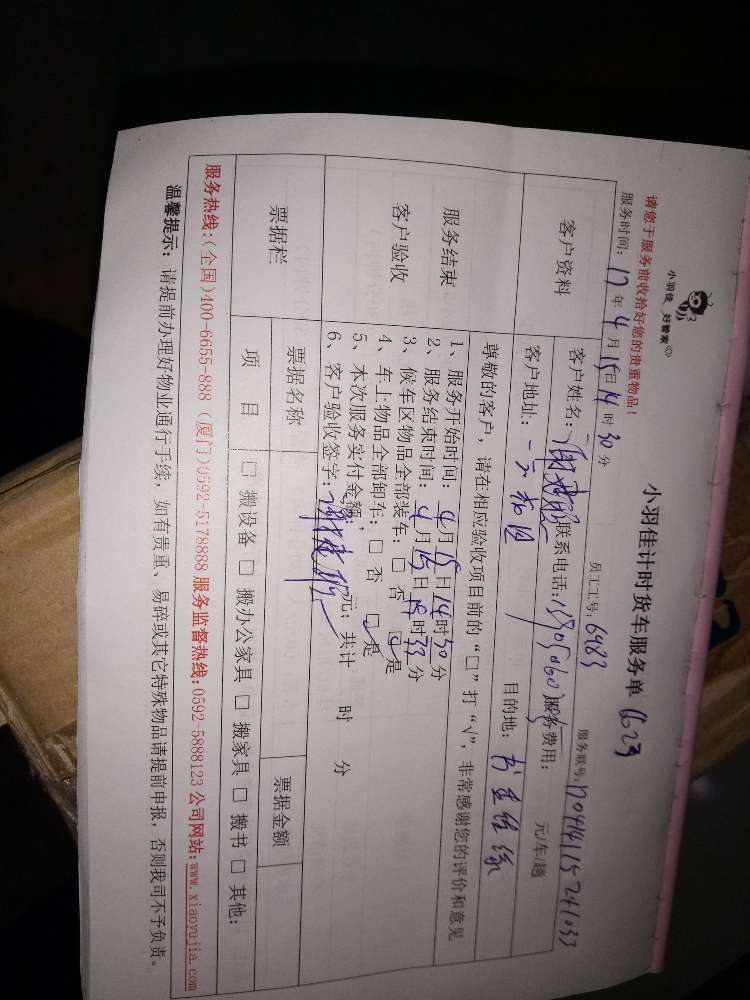 小羽佳 好管家
小羽佳计时货车服务单 6623
请您于服务前收拾好您的贵重物品!
员工工号: 6983
服务联号: 170414115241033
服务时间: 17 年 4 月 15 日 14 时 30 分
客户资料
客户姓名: 联系电话: 服务费用: 元/车/趟
客户地址: 目的地:
尊敬的客户, 请在相应验收项目前的 “□” 打 “√”, 非常感谢您的评价和意见
服务结束
客户验收
1、服务开始时间: 4 月 15 日 14 时 30 分
2、服务结束时间: 4 月 15 日 时 分
3、候车区物品全部装车: □ 否 ☑ 是
4、车上物品全部卸车: □ 否 ☑ 是
5、本次服务实付金额: 元; 共计 时 分
6、客户验收签字:
票据栏
票据名称
票据金额
项 目 □ 搬设备 □ 搬办公家具 □ 搬家具 □ 搬书 □ 其他:
服务热线:(全国)400-6655-888 (厦门)0592-5178888 服务监督热线:0592-5888123 公司网站:www.xiaoyujia.com
温馨提示: 请提前办理好物业通行手续, 如有贵重、易碎或其它特殊物品请提前申报, 否则我司不予负责。